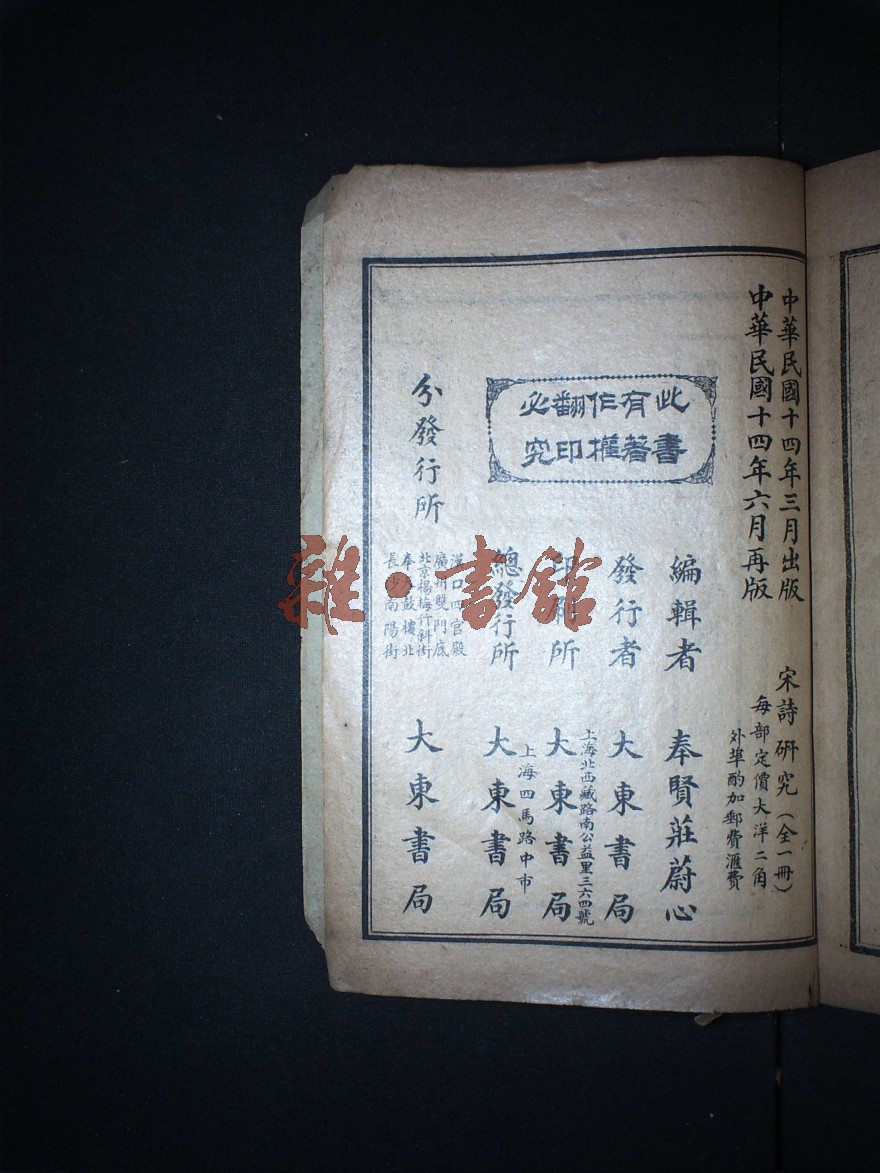 中華民國十四年三月出版
中華民國十四年六月再版
宋詩研究（全一冊）
每部定價大洋二角
外埠酌加郵費滙費
此書有著作權翻印必究
編輯者
奉賢莊蔚心
發行者
大東書局
上海北西藏路南公益里三六四號
印刷所
大東書局
上海四馬路中市
總發行所
大東書局
分發行所
漢口四官殿
廣州雙門底
北京楊梅竹斜街
奉天鼓樓北
長沙南陽街
大東書局
雜·書館